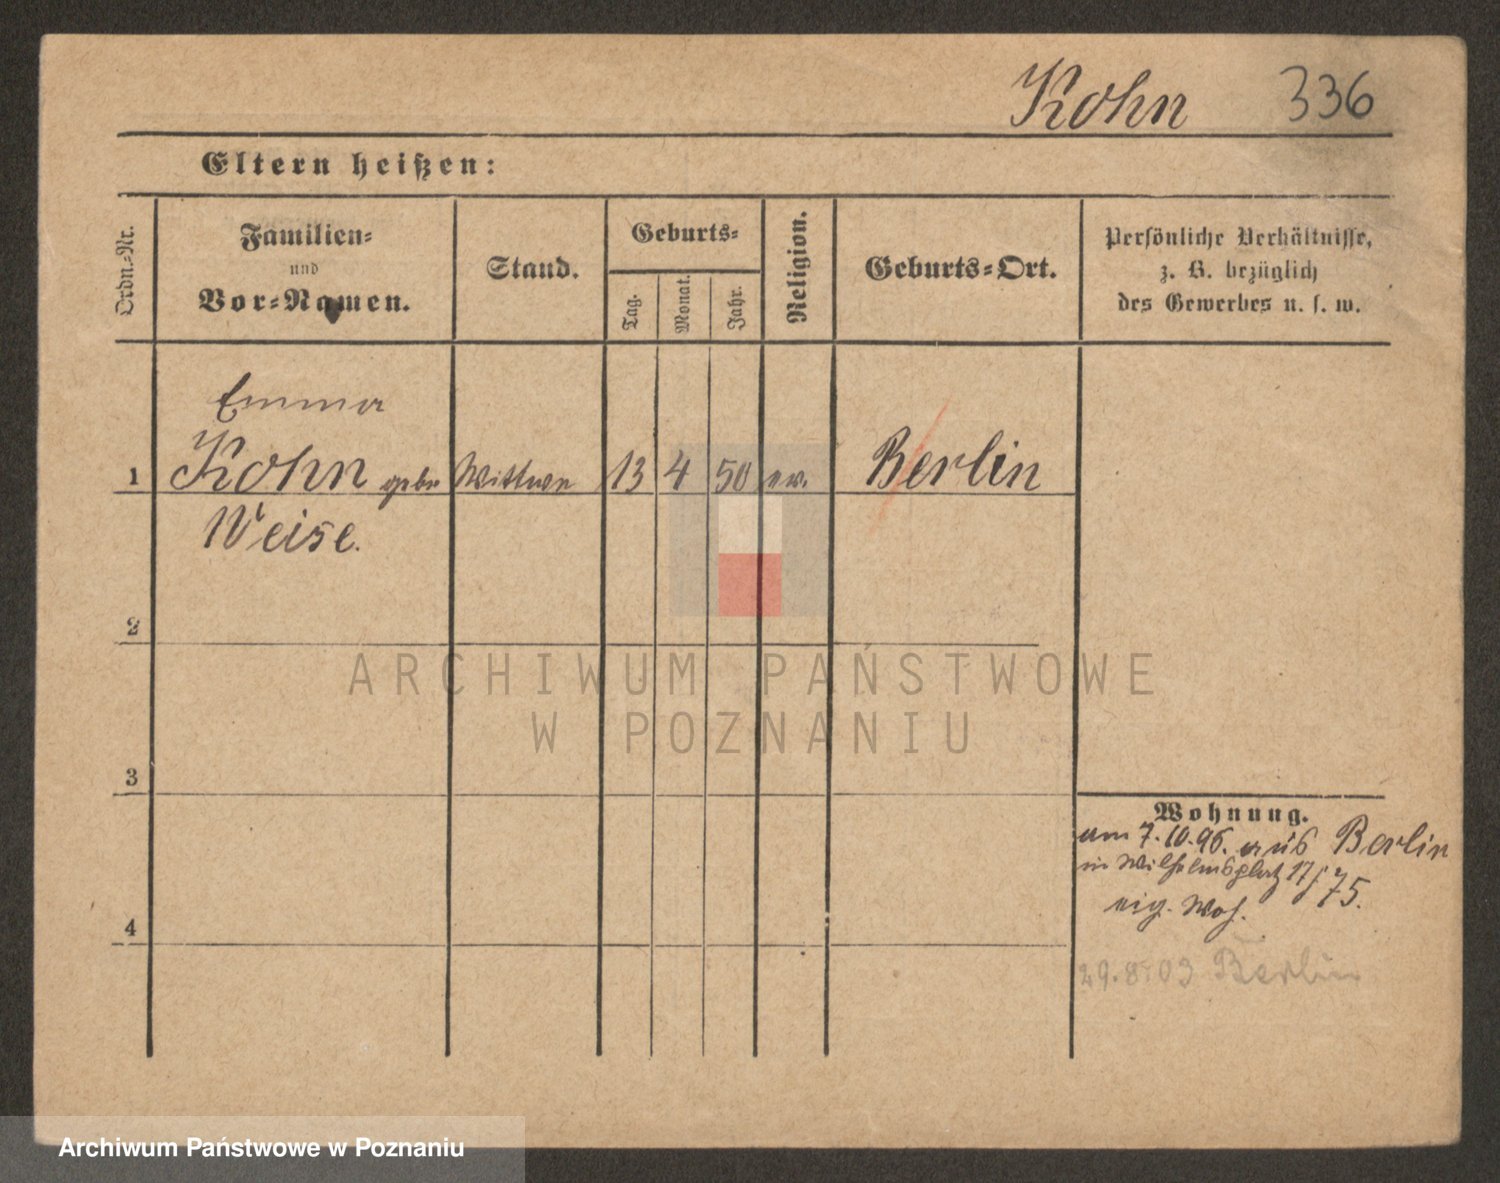 Kohn 336
Eltern heißen:
Ordn.-Nr.
Familien-
und
Vor-Namen.
Stand.
Geburts-
Tag.
Monat.
Jahr.
Religion.
Geburts-Ort.
Persönliche Verhältnisse,
z. B. bezüglich
des Gewerbes u. s. w.
Emma
1 Kohn gebe Wittwe 13 4 50 ev. Berlin
Weise.
2
3
4
Wohnung.
am 7.10.96. aus Berlin
in Wilhelmsplatz 17/ 75.
eig. Woh.
29.8.03 Berlin
ARCHIWUM PAŃSTWOWE
W POZNANIU
Archiwum Państwowe w Poznaniu